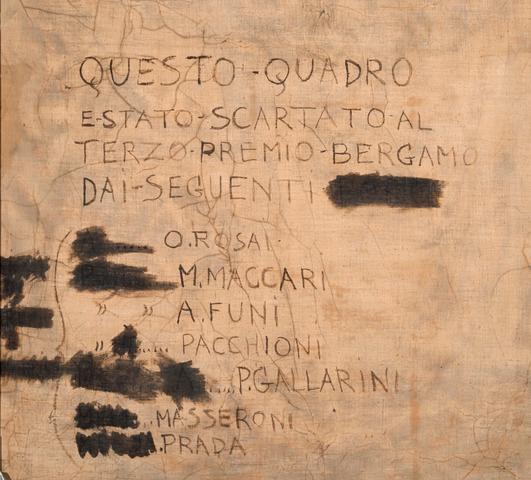 QUESTO-QUADRO
E-STATO-SCARTATO-AL
TERZO-PREMIO-BERGAMO
DAI-SEGUENTI
O.ROSAI.
M.MACCARI
" " A.FUNI
" ..... PACCHIONI
.....P.GALLARINI
...MASSERONI
.PRADA